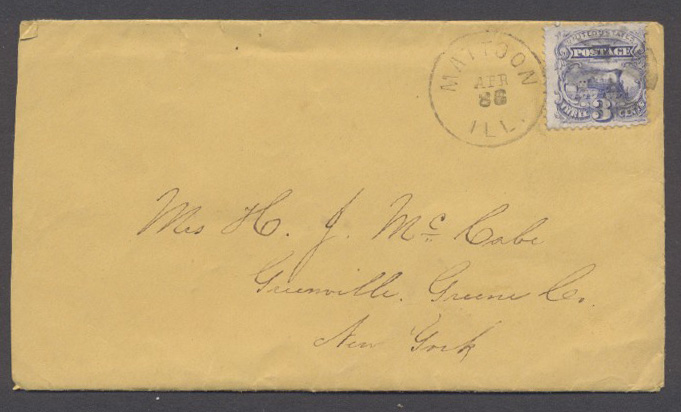 MATTOON
APR
26
ILL.
UNITED STATES
POSTAGE
THREE 3 CENTS
Mrs H. J. McCabe
Greenville, Greene Co.
New York